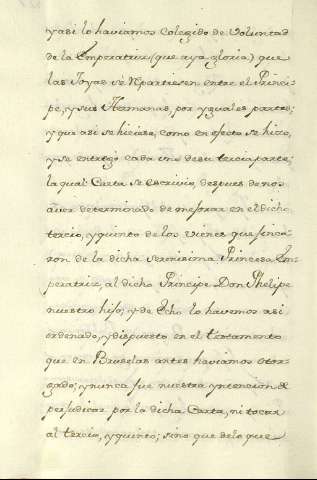 y asi lo haviamos Colegido de Voluntad
de la Emperatriz (que aya gloria) que
las Joyas se repartiesen entre el Princi-
pe, y sus Hermanas, por yguales partes;
y que asi se hiciese, como en efecto se hizo,
y se entregó cada uno de su tercia parte;
la qual Carta se escrivio, despues de nos
aver determinado de mejorar en el dicho
tercio, y quinto de los vienes que finca-
ron de la dicha serenisima Princesa Em-
peratriz, al dicho Principe Don Phelipe
nuestro hijo; y de Echo lo havemos asi
ordenado, y dispuesto en el testamento
que en Bruselas antes haviamos otor-
gado; y nunca fue nuestra yntencion de
perjudicar por la dicha Carta, ni tocar
al tercio, y quinto; sino que de lo que